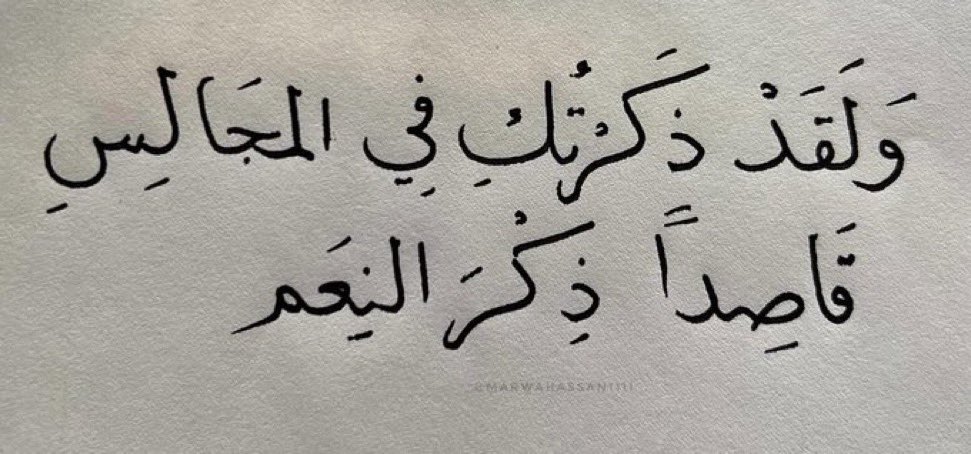 وَلَقَدْ ذَكَرْتُكِ فِي المجَالِسِ
قَاصِداً ذِكْرَ النِعَم
@MARWAHASSAN1111